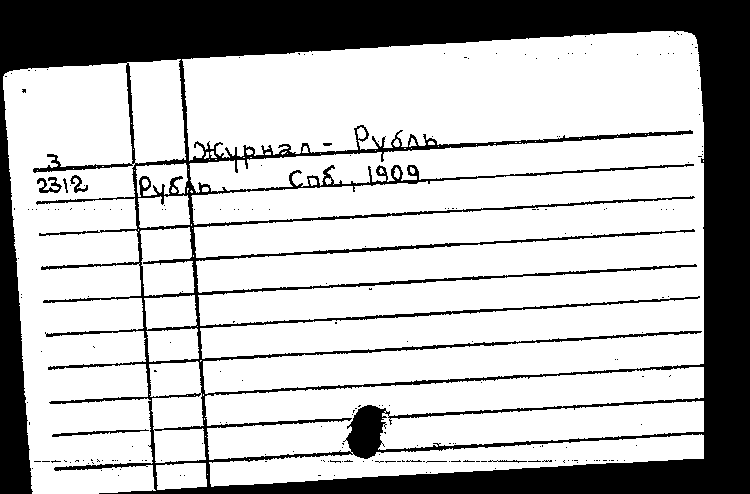 Журнал - Рубль
3
2312 Рубль. Спб., 1909.